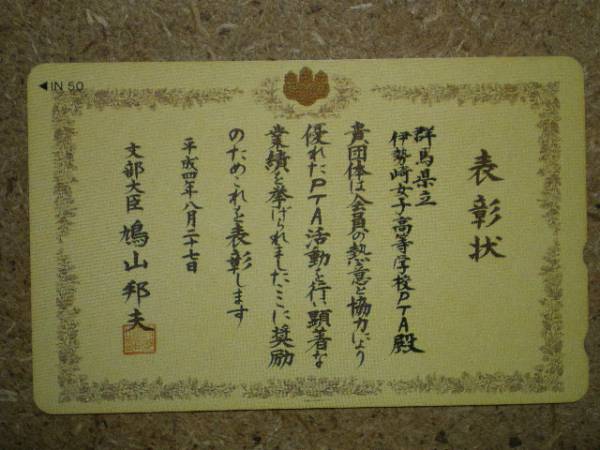 ◀IN 50
表彰状
群馬県立
伊勢崎女子高等学校PTA殿
貴団体は会員の熱意と協力により
優れたPTA活動を行い顕著な
業績を挙げられましたここに奨励
のためこれを表彰します
平成四年八月二十七日
文部大臣 鳩山邦夫